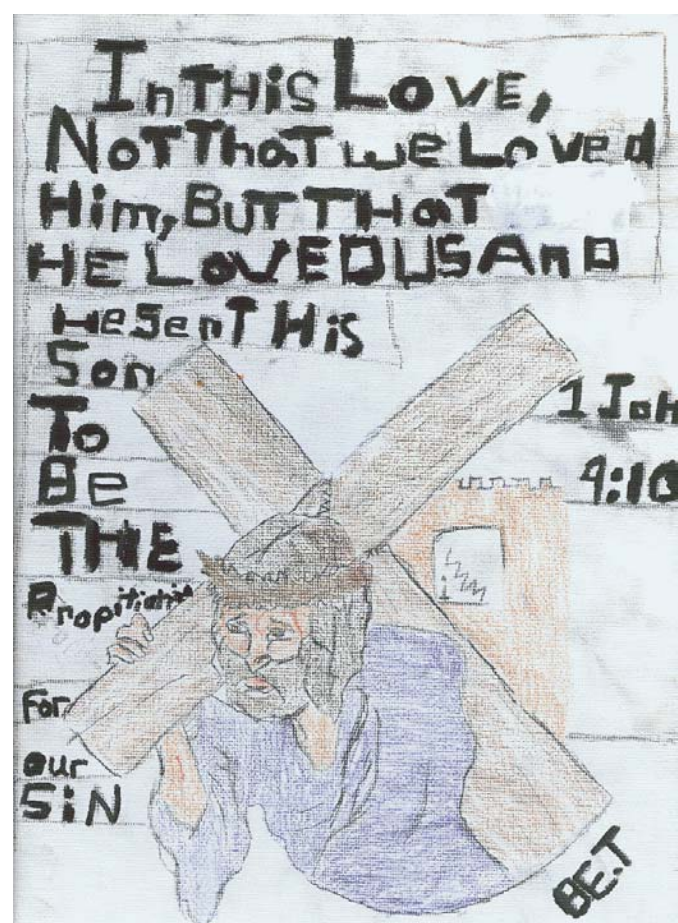 In THis LovE,
NoT ThaT we Loved
Him, BUT THaT
HE LovED US AnD
He SenT His
Son
To
Be
THE
Propitiation
For
our
SiN
1 Joh
4:10
BE.T